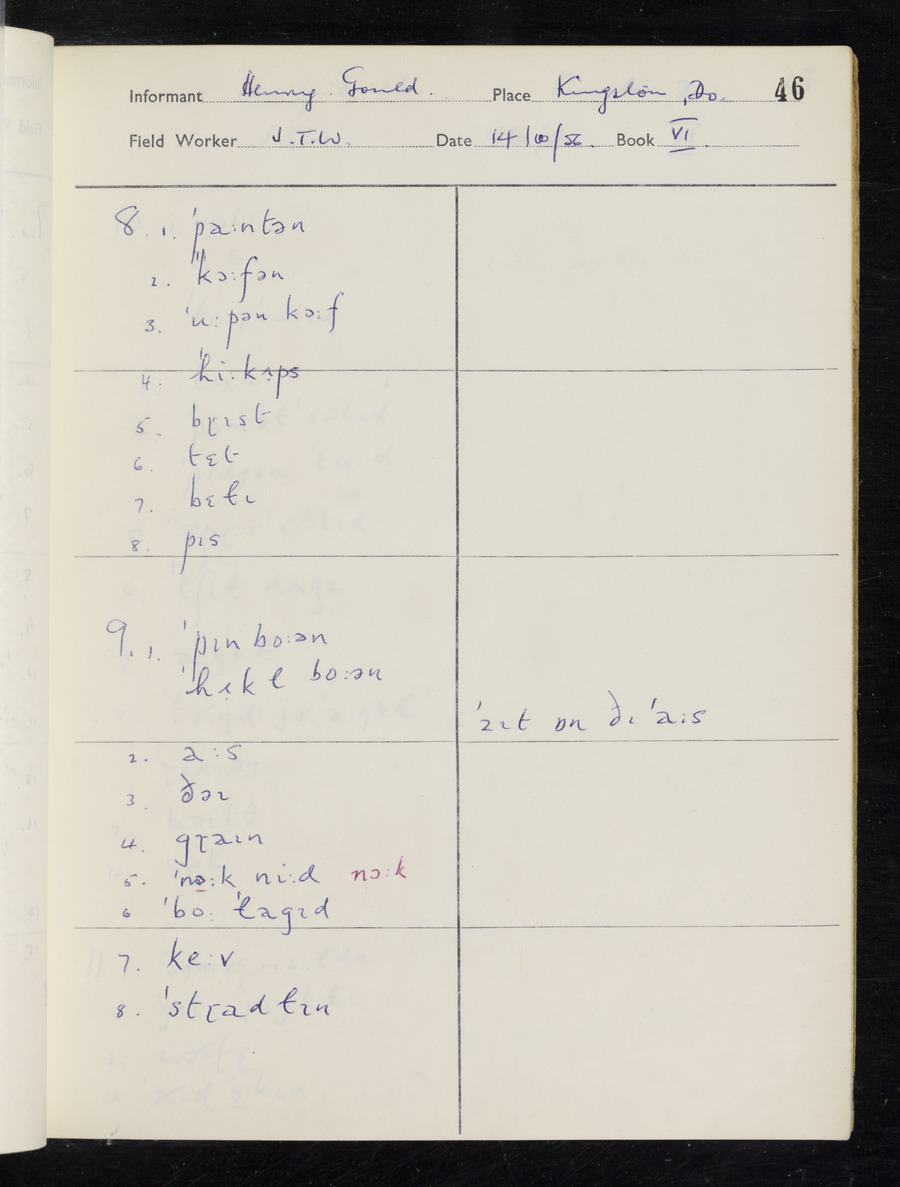 Informant Henry Gould. Place Kingston, Do. 46
Field Worker J.T.W. Date 14/10/56. Book VI.
8. 1. ˈpaːntən
2. ˈkɔːfən
3. ˈuːpən kɔːf
4. ˈhiːkəps
5. bɽɪst
6. tɛt
7. bɛɫɪ
8. pɪs
9. 1. ˈpɪn boːən
ˈhʌkɫ boːən
ˈʌɪt ɒn ðɪ ˈaːs
2. aːs
3. ðəɪ
4. gɽaɪn
5. ˈnɔːk niːd nɔːk
6 ˈboː ɫagɪd
7. keːv
8. ˈstɽadɫɪn